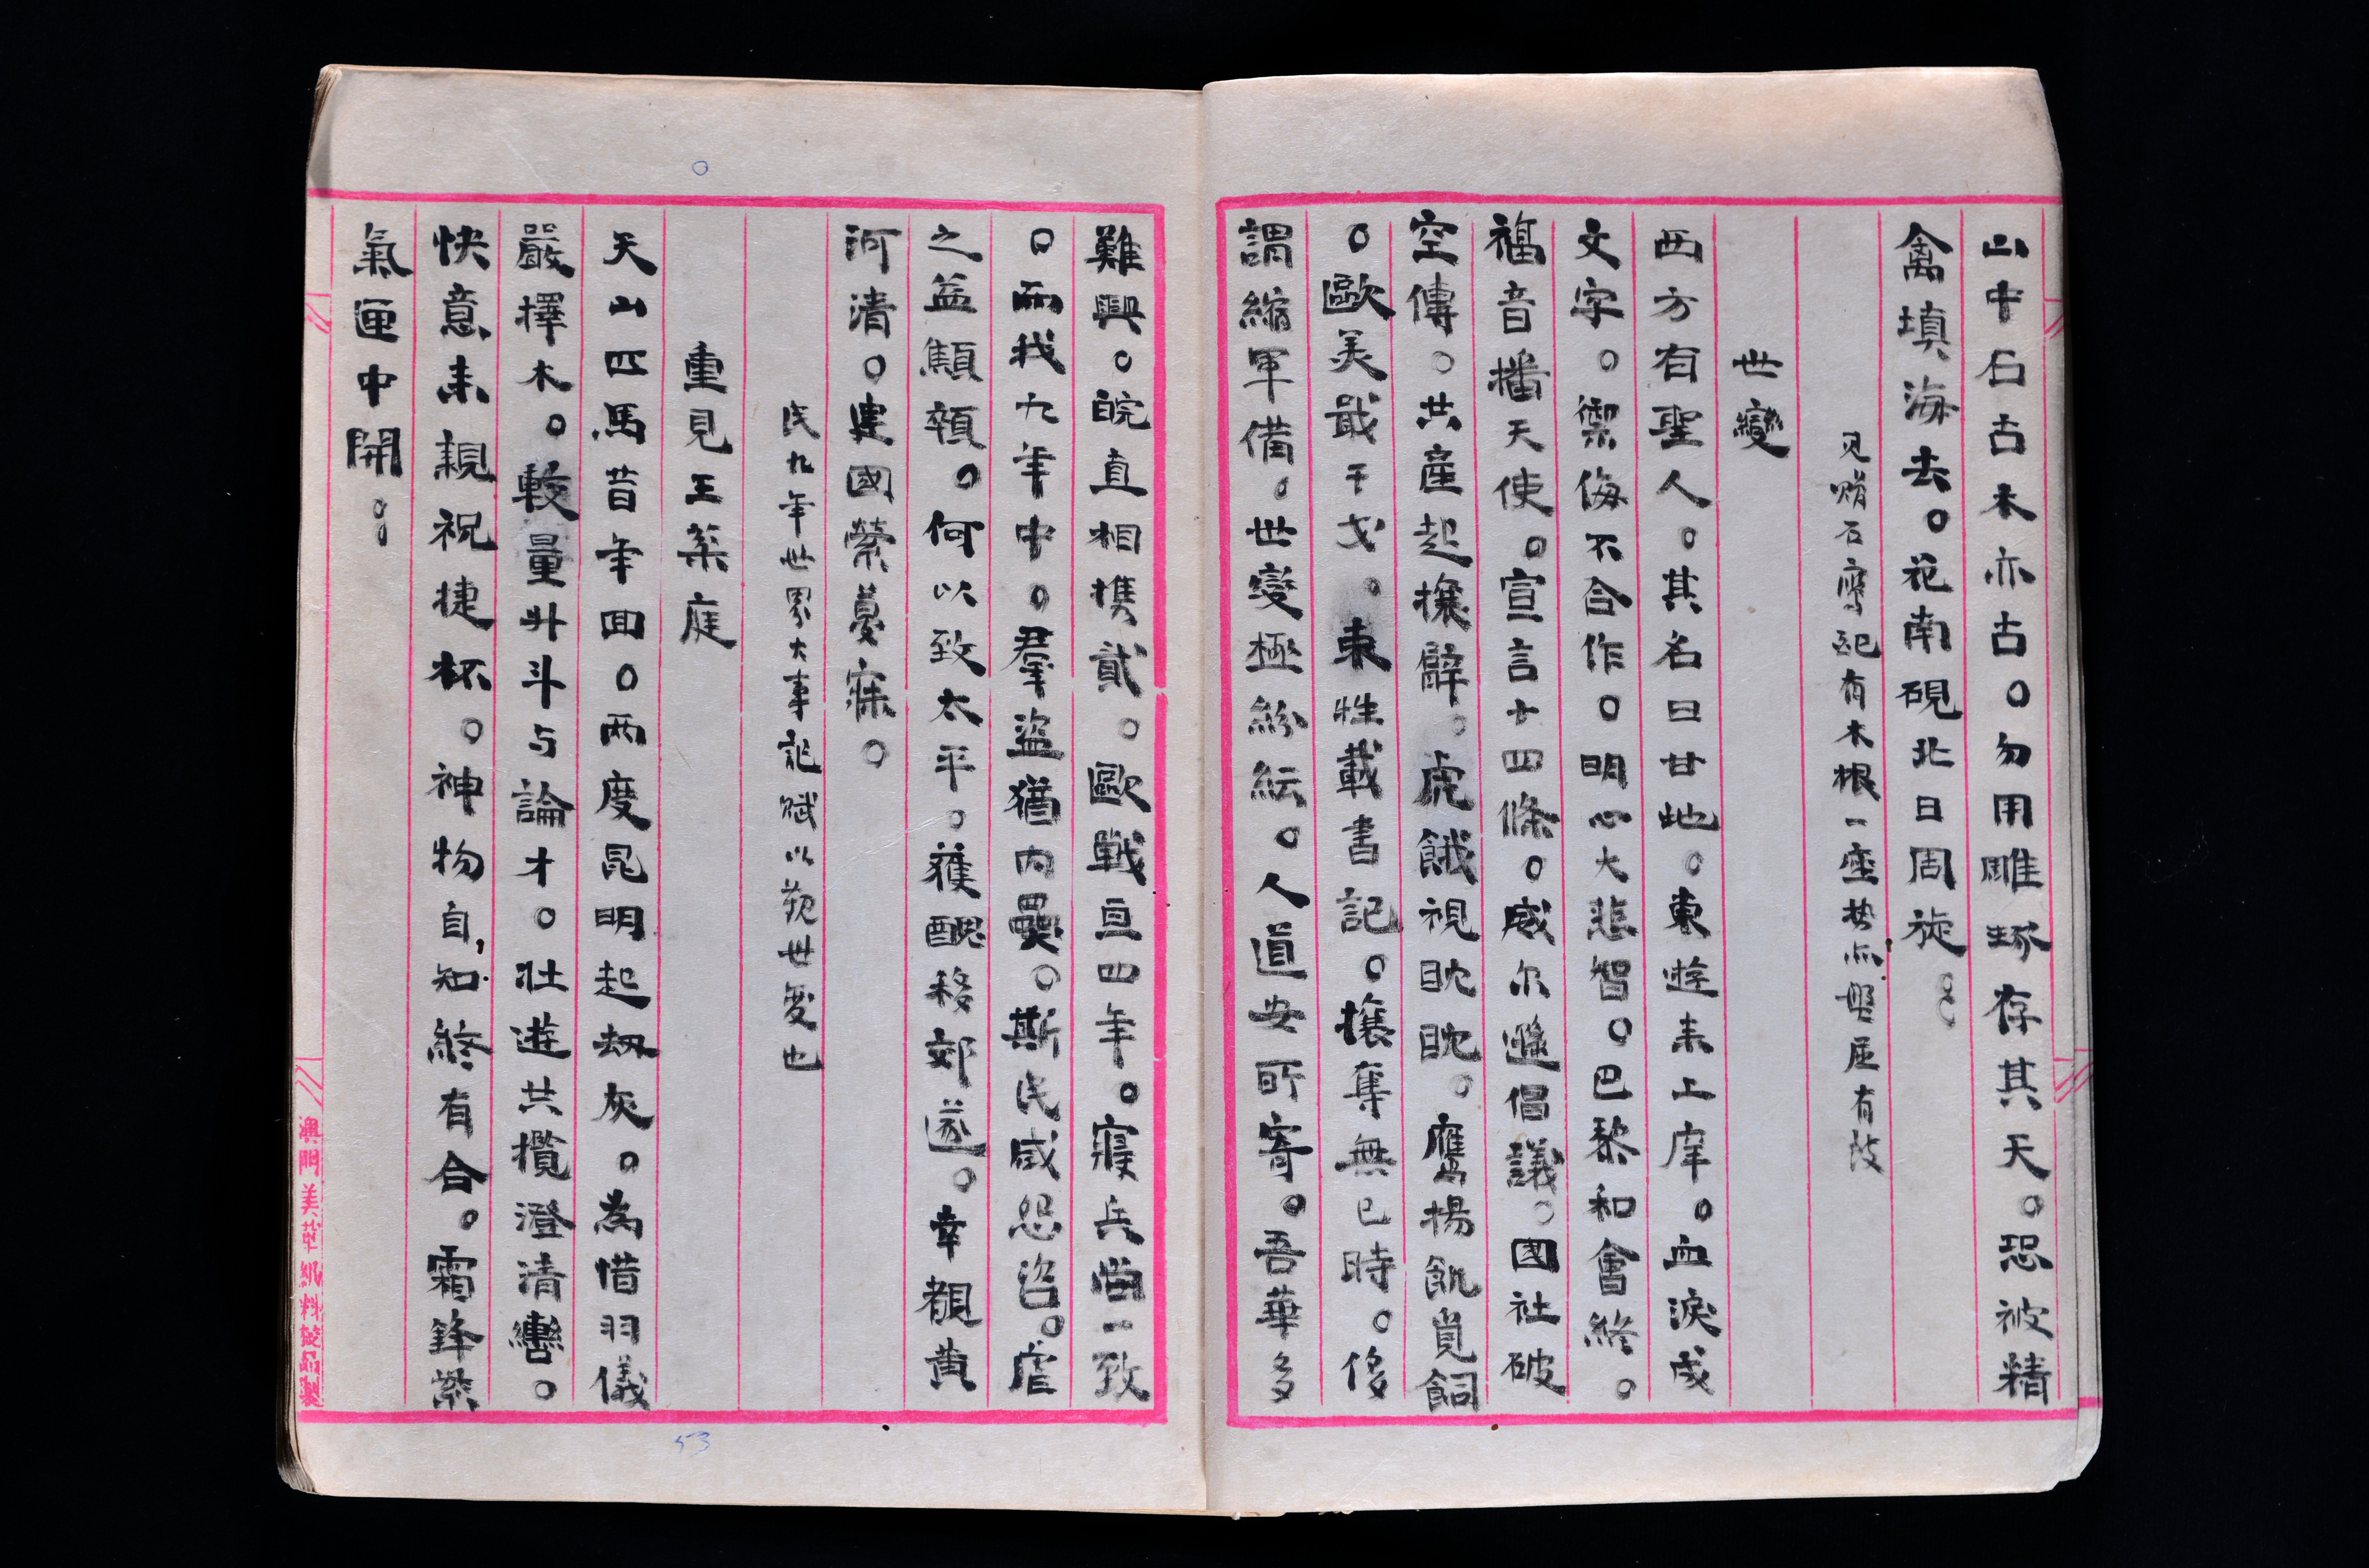 山中石古木亦古。勿用雕琢存其天。恐被精
禽填海去。花南硯北日周旋。。
见贻石湾配有木根一座势亦盤屈有致
世變
西方有聖人。其名曰甘地。東遊来上庠。血淚成
文字。禦侮不合作。明心大悲智。巴黎和會終。
福音播天使。宣言十四條。威尔遜倡議。國社破
空傳。共產起攘臂。虎餓視眈眈。鷹揚飢覓飼
。歐美戢干戈。東牲載書記。攘奪無已時。侈
謂縮軍備。世變極紛紜。人道安所寄。吾華多
難興。皖直相携貳。歐戰亘四年。寢兵尚一致
。而我九年中。羣盜猶內釁。斯民咸怨咨。虐
之益顛頓。何以致太平。獲醜移郊遂。幸覩黃
河清。建國縈夢寐。
民九年世界大事記賦以觀世變也
重見王葉庭
天山匹馬昔年回。兩度昆明起劫灰。為惜羽儀
嚴擇木。較量升斗与論才。壯遊共攬澄清轡。
快意来親祝捷杯。神物自知終有合。霜鋒紫
氣匣中開。。
澳門美華紙料文具製
53